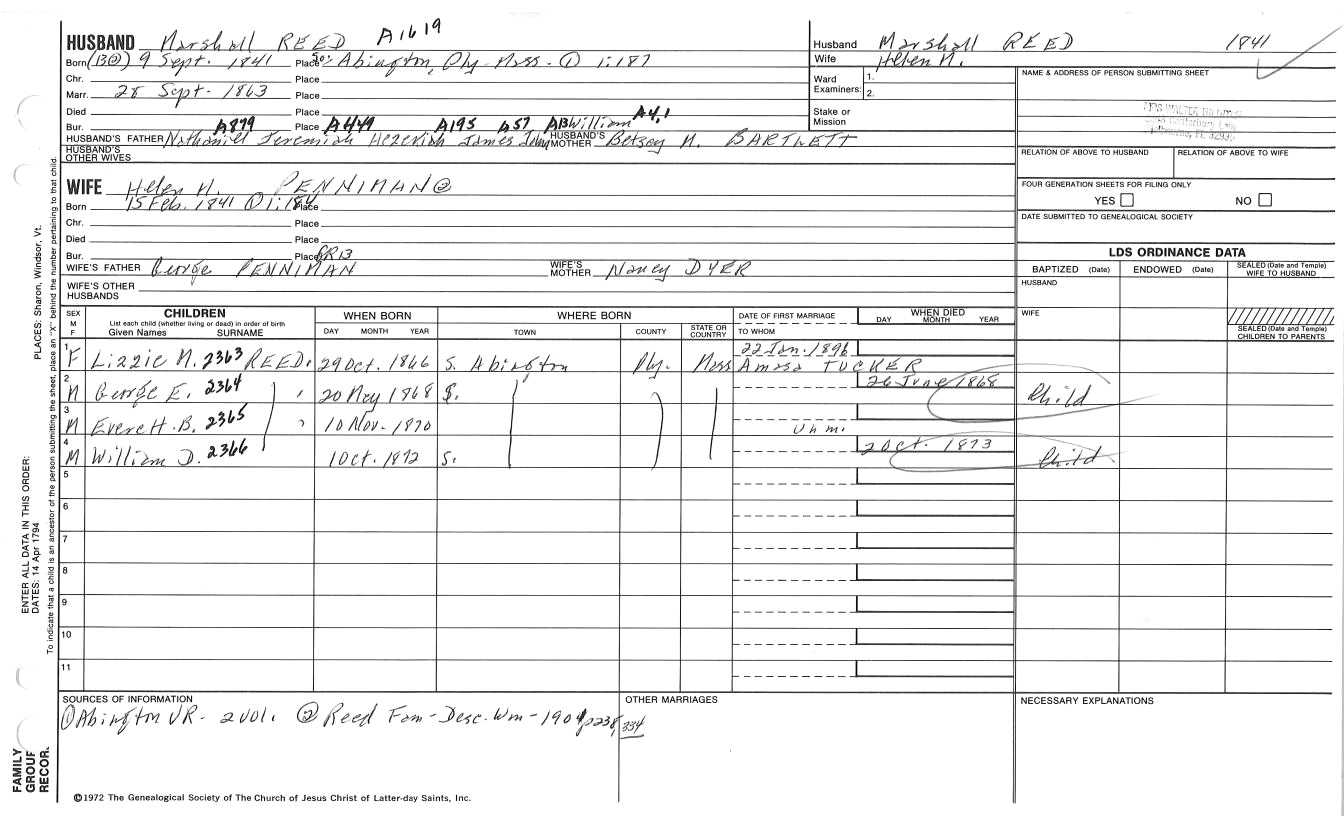 HUSBAND Marshall REED A1619
Born (B②) 9 Sept. 1841 Place So. Abington, Ply. Mass. ① 1:187
Chr. Place
Marr. 28 Sept. 1863 Place
Died Place
Bur. A879 Place A449 A195 A57 A13 William A4,1
HUSBAND'S FATHER Nathaniel Jeremiah Hezekiah James John HUSBAND'S MOTHER Betsey M. BARTLETT
HUSBAND'S OTHER WIVES
WIFE Helen M. PENNIMAN②
Born 15 Feb. 1841 ① 1:184 Place
Chr. Place
Died Place
Bur. Place GR13
WIFE'S FATHER George PENNIMAN WIFE'S MOTHER Nancy DYER
WIFE'S OTHER HUSBANDS
Husband Marshall REED 1841
Wife Helen M.
Ward Examiners: 1.
2.
Stake or Mission
NAME & ADDRESS OF PERSON SUBMITTING SHEET
RELATION OF ABOVE TO HUSBAND RELATION OF ABOVE TO WIFE
FOUR GENERATION SHEETS FOR FILING ONLY
YES NO
DATE SUBMITTED TO GENEALOGICAL SOCIETY
LDS ORDINANCE DATA
BAPTIZED (Date) ENDOWED (Date) SEALED (Date and Temple) WIFE TO HUSBAND
HUSBAND
WIFE
SEALED (Date and Temple) CHILDREN TO PARENTS
SEX M F
CHILDREN
List each child (whether living or dead) in order of birth
Given Names SURNAME
WHEN BORN
DAY MONTH YEAR
WHERE BORN
TOWN COUNTY STATE OR COUNTRY
DATE OF FIRST MARRIAGE
TO WHOM
WHEN DIED
DAY MONTH YEAR
1 F Lizzie M. 2363 REED. 29 Oct. 1866 S. Abington Ply. Mass 22 Jan. 1896 Amasa TUCKER
2 M George E. 2364 " 20 May 1868 S. 26 June 1868 Child
3 M Everett B. 2365 " 10 Nov. 1870 Unm.
4 M William D. 2366 1 Oct. 1872 S. 2 Oct. 1873 Child
5
6
7
8
9
10
11
SOURCES OF INFORMATION
① Abington VR - 2 vol. ② Reed Fam - Desc. Wm - 1901 p238, 334
OTHER MARRIAGES
NECESSARY EXPLANATIONS
©1972 The Genealogical Society of The Church of Jesus Christ of Latter-day Saints, Inc.
PLACES: Sharon, Windsor, Vt.
ENTER ALL DATA IN THIS ORDER:
DATES: 14 Apr 1794
To indicate that a child is an ancestor of the person submitting the sheet, place an "X" behind the number pertaining to that child.
FAMILY GROUP RECOR.